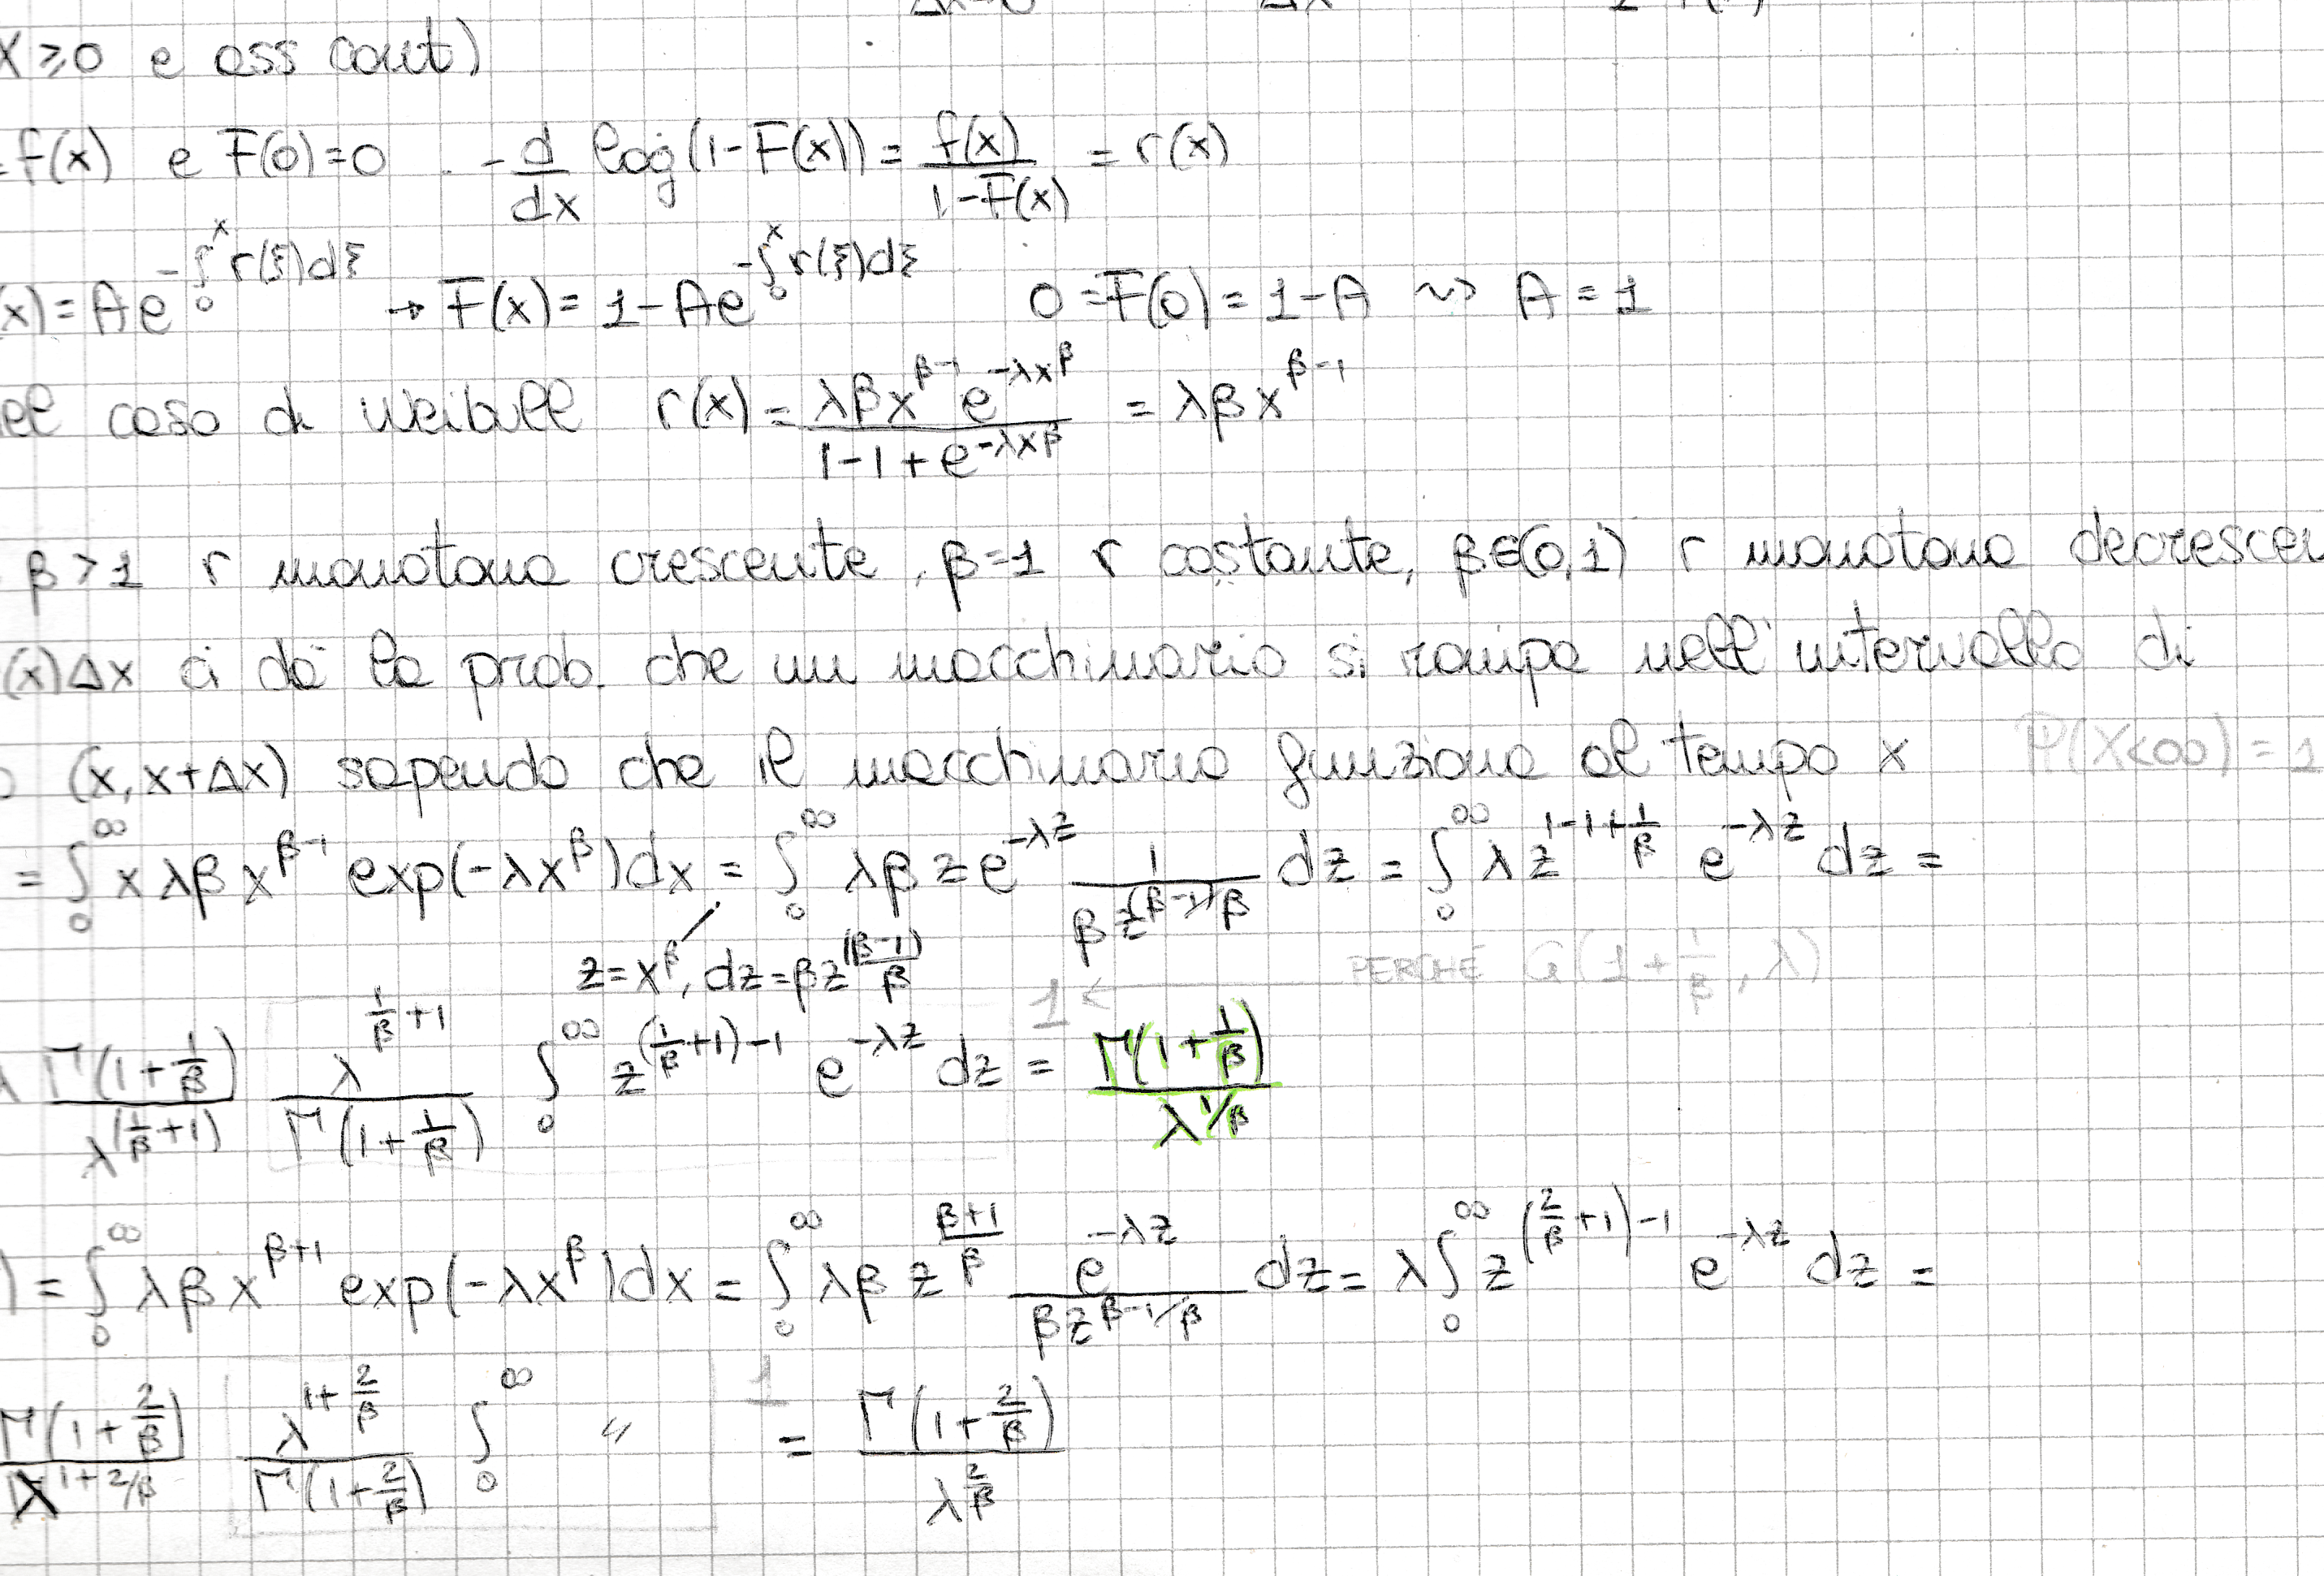 X ≥ 0 e ass cont)
= f(x) e F(0) = 0 - d/dx log(1-F(x)) = f(x)/(1-F(x)) = r(x)
(x) = A e^{-∫_0^x r(ξ)dξ} → F(x) = 1 - A e^{-∫_0^x r(ξ)dξ} 0 = F(0) = 1 - A ⇝ A = 1
el caso di Weibull r(x) = λβx^{β-1} e^{-λx^β} / (1-1+e^{-λx^β}) = λβx^{β-1}
β > 1 r monotona crescente, β = 1 r costante, β ∈ (0,1) r monotona decrescen
(x)Δx ci dà la prob. che un macchinario si rompa nell'intervallo di
(x, x+Δx) sapendo che il macchinario funziona al tempo x P(X<∞) = 1
= ∫_0^∞ x λβ x^{β-1} exp(-λx^β)dx = ∫_0^∞ λβ z e^{-λz} 1/(β z^{(β-1)/β}) dz = ∫_0^∞ λ z^{1-1+1/β} e^{-λz} dz =
z = x^β, dz = β z^{(β-1)/β} PERCHÉ G(1+1/β, λ)
1 ←
λ Γ(1+1/β)/λ^{(1/β+1)} λ^{1/β+1}/Γ(1+1/β) ∫_0^∞ z^{(1/β+1)-1} e^{-λz} dz = Γ(1+1/β)/λ^{1/β}
) = ∫_0^∞ λβ x^{β+1} exp(-λx^β)dx = ∫_0^∞ λβ z^{(β+1)/β} e^{-λz}/(β z^{β-1/β}) dz = λ∫_0^∞ z^{(2/β+1)-1} e^{-λz} dz =
1
Γ(1+2/β)/λ^{1+2/β} λ^{1+2/β}/Γ(1+2/β) ∫_0^∞ " = Γ(1+2/β)/λ^{2/β}